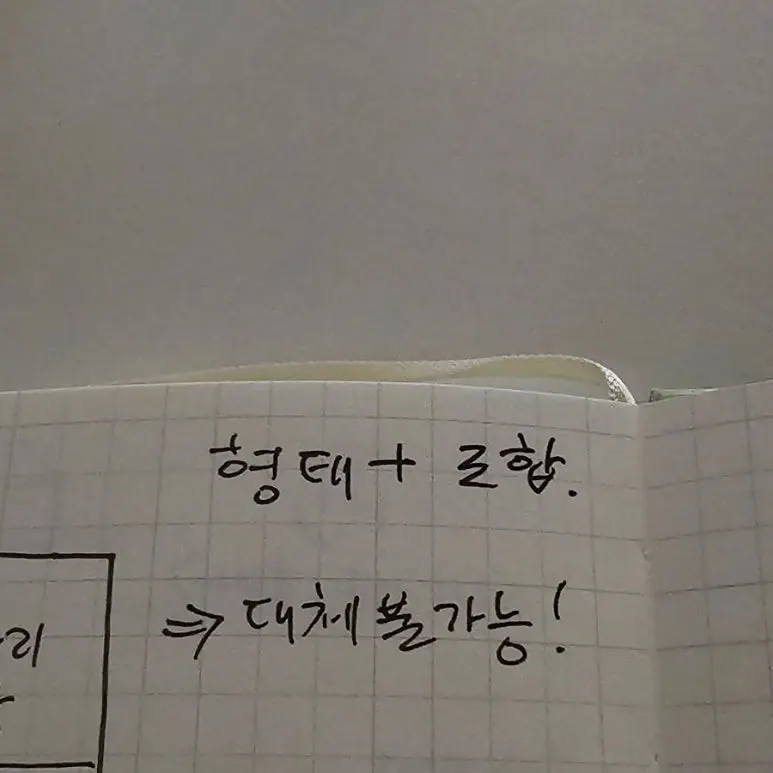 형태 + 조합.
⇒ 대체불가능!
리